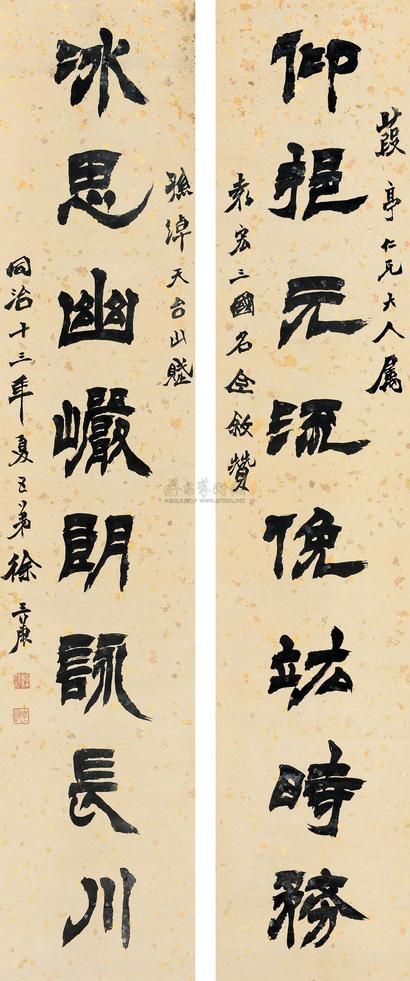 葭亭仁兄大人屬
仰挹元流俛竑時務
袁宏三國名臣敘贊
孫綽天台山賦
冰思幽巗朗詠長川
同治十三年夏五弟徐三庚